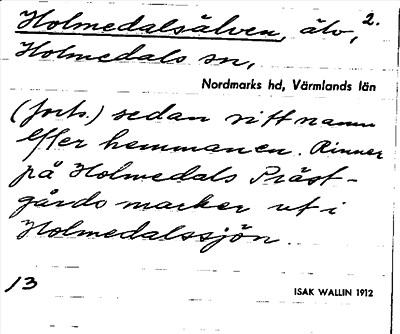 Holmedalsälven, älv, 2.
Holmedals sn,
Nordmarks hd, Värmlands län
(forts.) sedan sitt namn
efter hemmanen. Rinner
på Holmedals Präst-
gårds marker ut i
Holmedalssjön.
13
ISAK WALLIN 1912